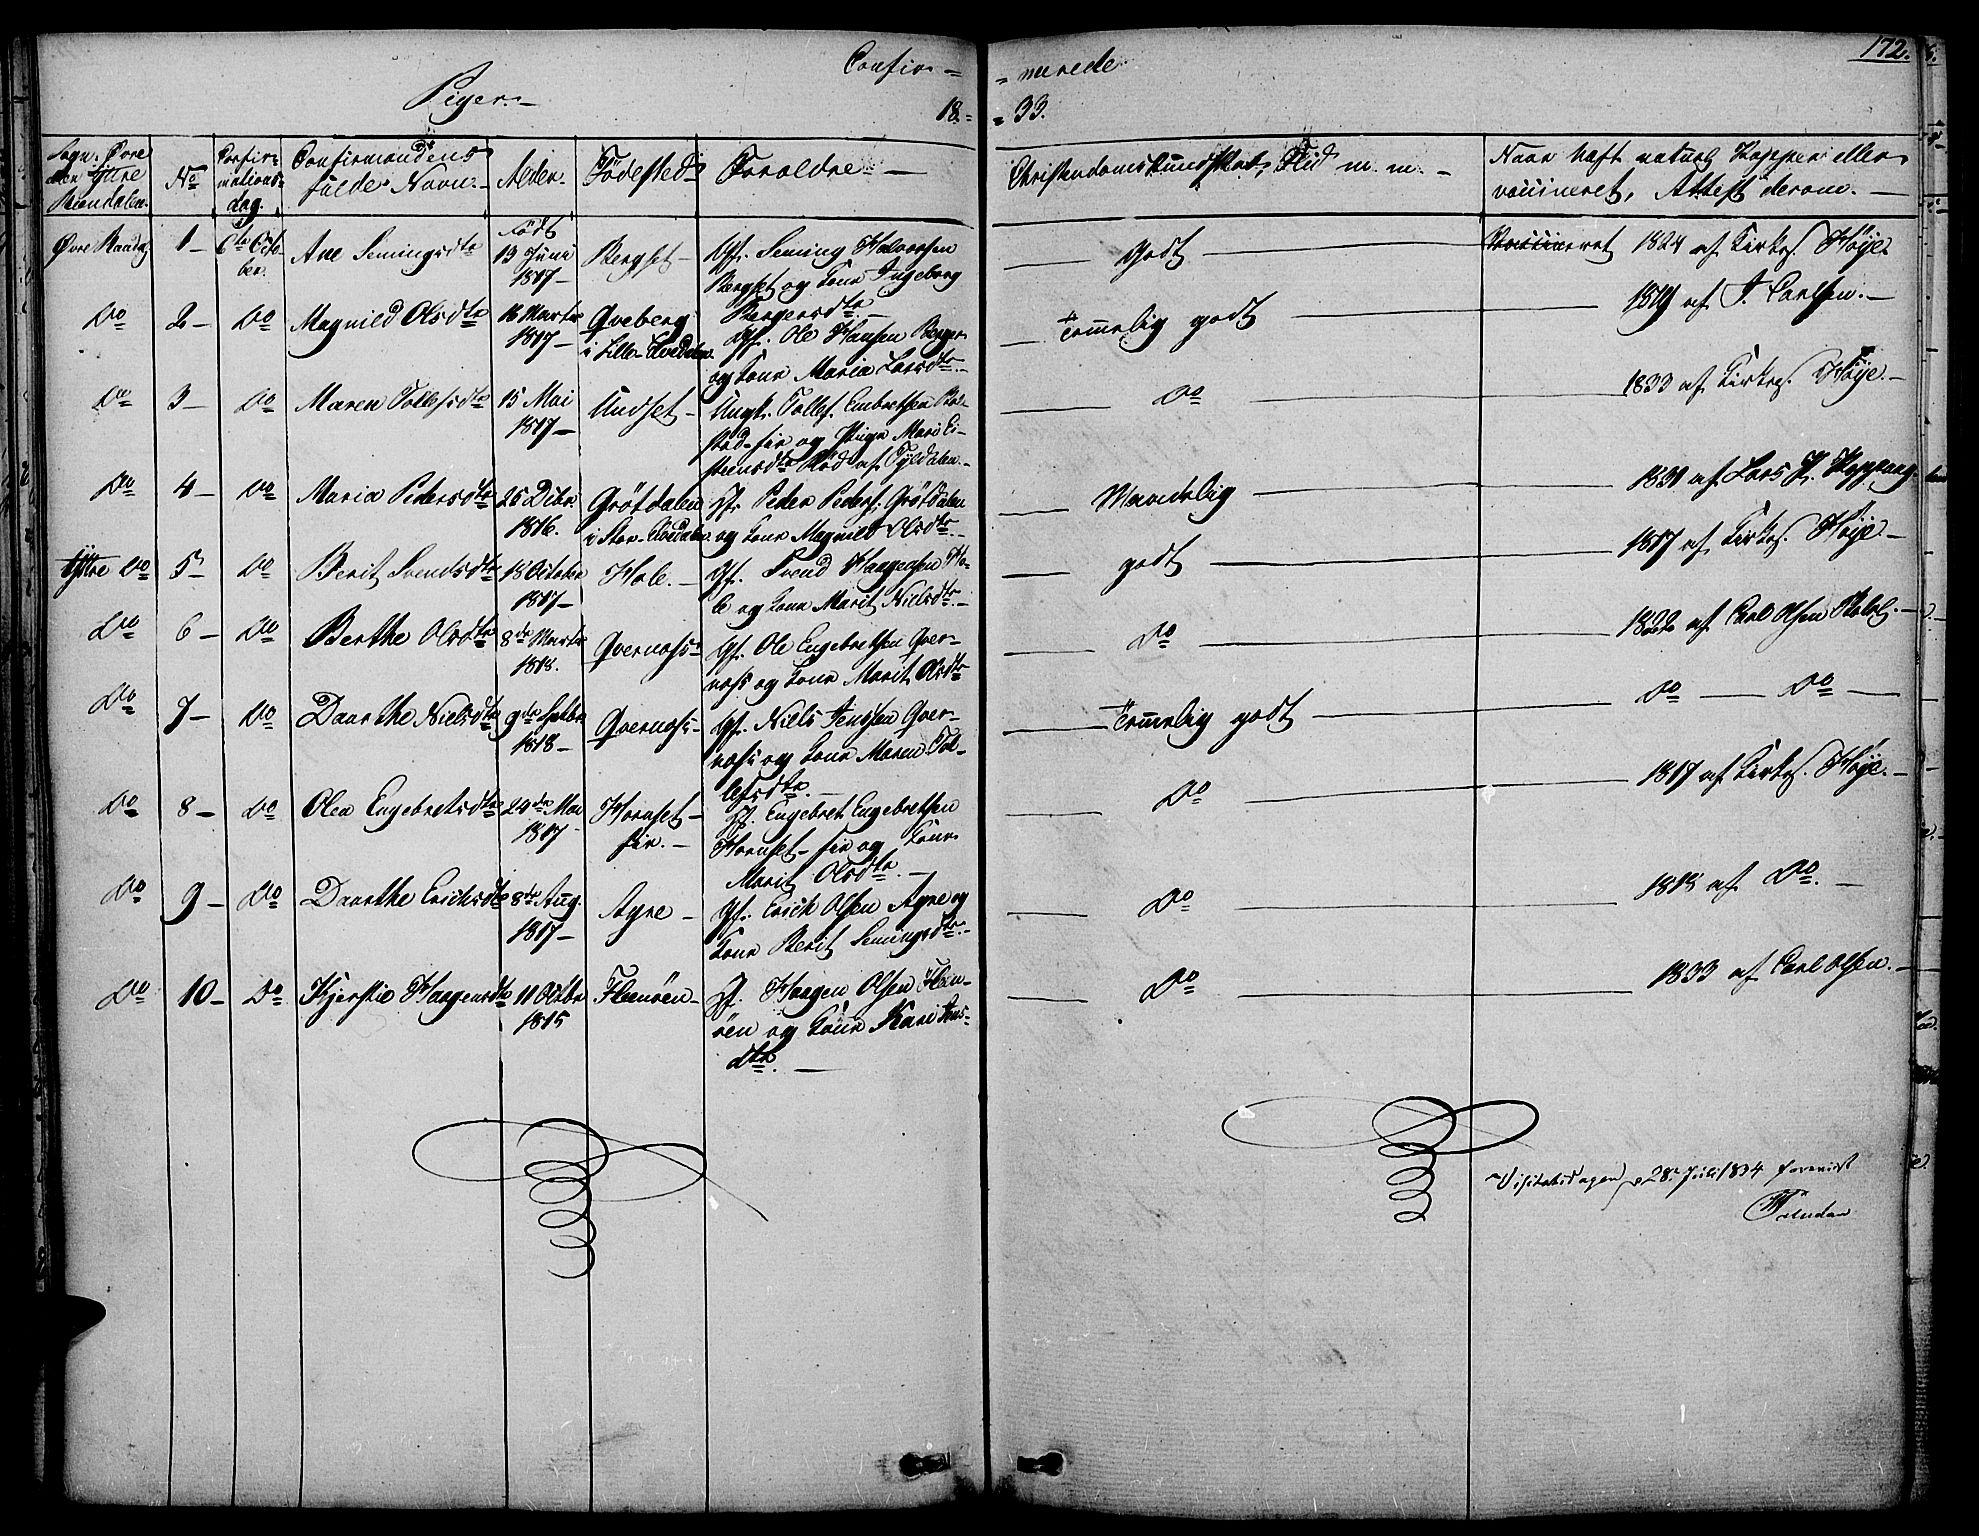 Confir= =merede
172.
Piger.
18= =33.
Sogn: Øvre
eller Yttre
Rendalen.
No
Confir=
mations=
dag.
Confirmandens
fulde Navn.
Alder.
Fødested.
Forældre.
Christendomskundskab, Flid m. m.
Naar haft naturl Kopper eller
vaccineret, Attest derom.
Øvre Rendal 1 6te Octo
ber.
Ane Semingsdtr
født
13 Juni
1817
Bergset
Gf. Seming Halvorsen
Bergset og Kone Ingeborg
Bergersdtr.
Godt
Vaccineret 1824 af Kirkes. Høye.
Do 2 Do Magnild Olsdtr
18 Marts
1817
Qveberg
i Lille-Elvedalen
Gf. Ole Hansen Berger
og Kone Maria Larsdtr.
Temmelig godt
1819 af J. Carlsen.
Do 3 Do Maren Tollefsdtr
15 Mai
1817
Undset
Ungk. Tollef Embretsen
og Pige Mari Ei=
steensdtr Rød af Tyldalen.
Do
1833 af Kirkes. Høye.
Do 4 Do Maria Pedersdtr
26 Dcbr.
1816.
Grøtdalen
i Stor-Elvedalen
If. Peder Peders. Grøtdalen
og Kone Magnild Olsdtr.
Maadelig
1831 af Lars H. Koppang
Yttre Do 5 Do Berit Svendsdtr
18 October
1817
Hole.
Gf. Svend Haagensen Ho=
le og Kone Marit Nielsdtr.
godt
1817 af Kirkes. Høye.
Do 6 Do Berthe Olsdtr
8de Marts
1818.
Qvernæss
Gf. Ole Engebretsen Qver=
næss og Kone Marit Olsdtr
Do
1822 af Carl Olsen
Do 7 Do Daarthe Nielsdtr
9de Septbr
1818
Qvernæss
Gf. Niels Jensen Qver=
næss og Kone Maren Tol=
lefsdtr.
Temmelig godt
Do Do
Do 8 Do Olea Engebretsdtr
24de Mai
1817
Hornset=
eie.
If. Engebret Engebretsen
Hornset-eie og Kone
Marit Olsdtr.
Do
1817 af Kirkes. Høye.
Do 9 Do Daarthe Erichsdtr
8de Aug.
1817
Agre
Gf. Erich Olsen Agre og
Kone Berit Semingsdtr.
Do
1818 af Do.
Do 10 Do Kjerstie Haagensdtr
11 Octbr
1815
Fleenøen
If. Haagen Olsen Flen=
øen og Kone Kari Jens=
dtr.
Do
1833 af Carl Olsen.
Visitatsdagen d 28 Juli 1834 foreviist